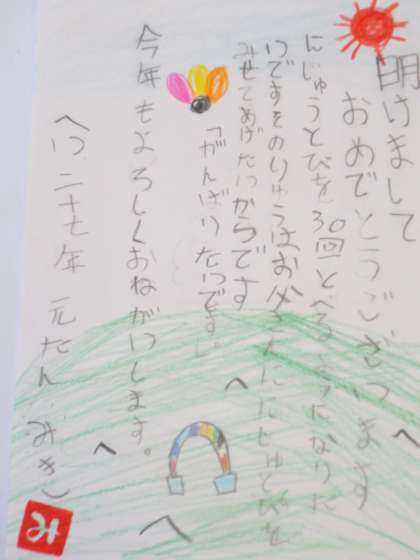 明けまして
おめでとうございます
にじゅうとびを30回とべるようになりた
いですそのりゆうはお父さんににじゅとびを
みせてあげたいからです
「がんばりたいです。」
今年もよろしくおねがいします。
へい二十七年 元たん みき
み